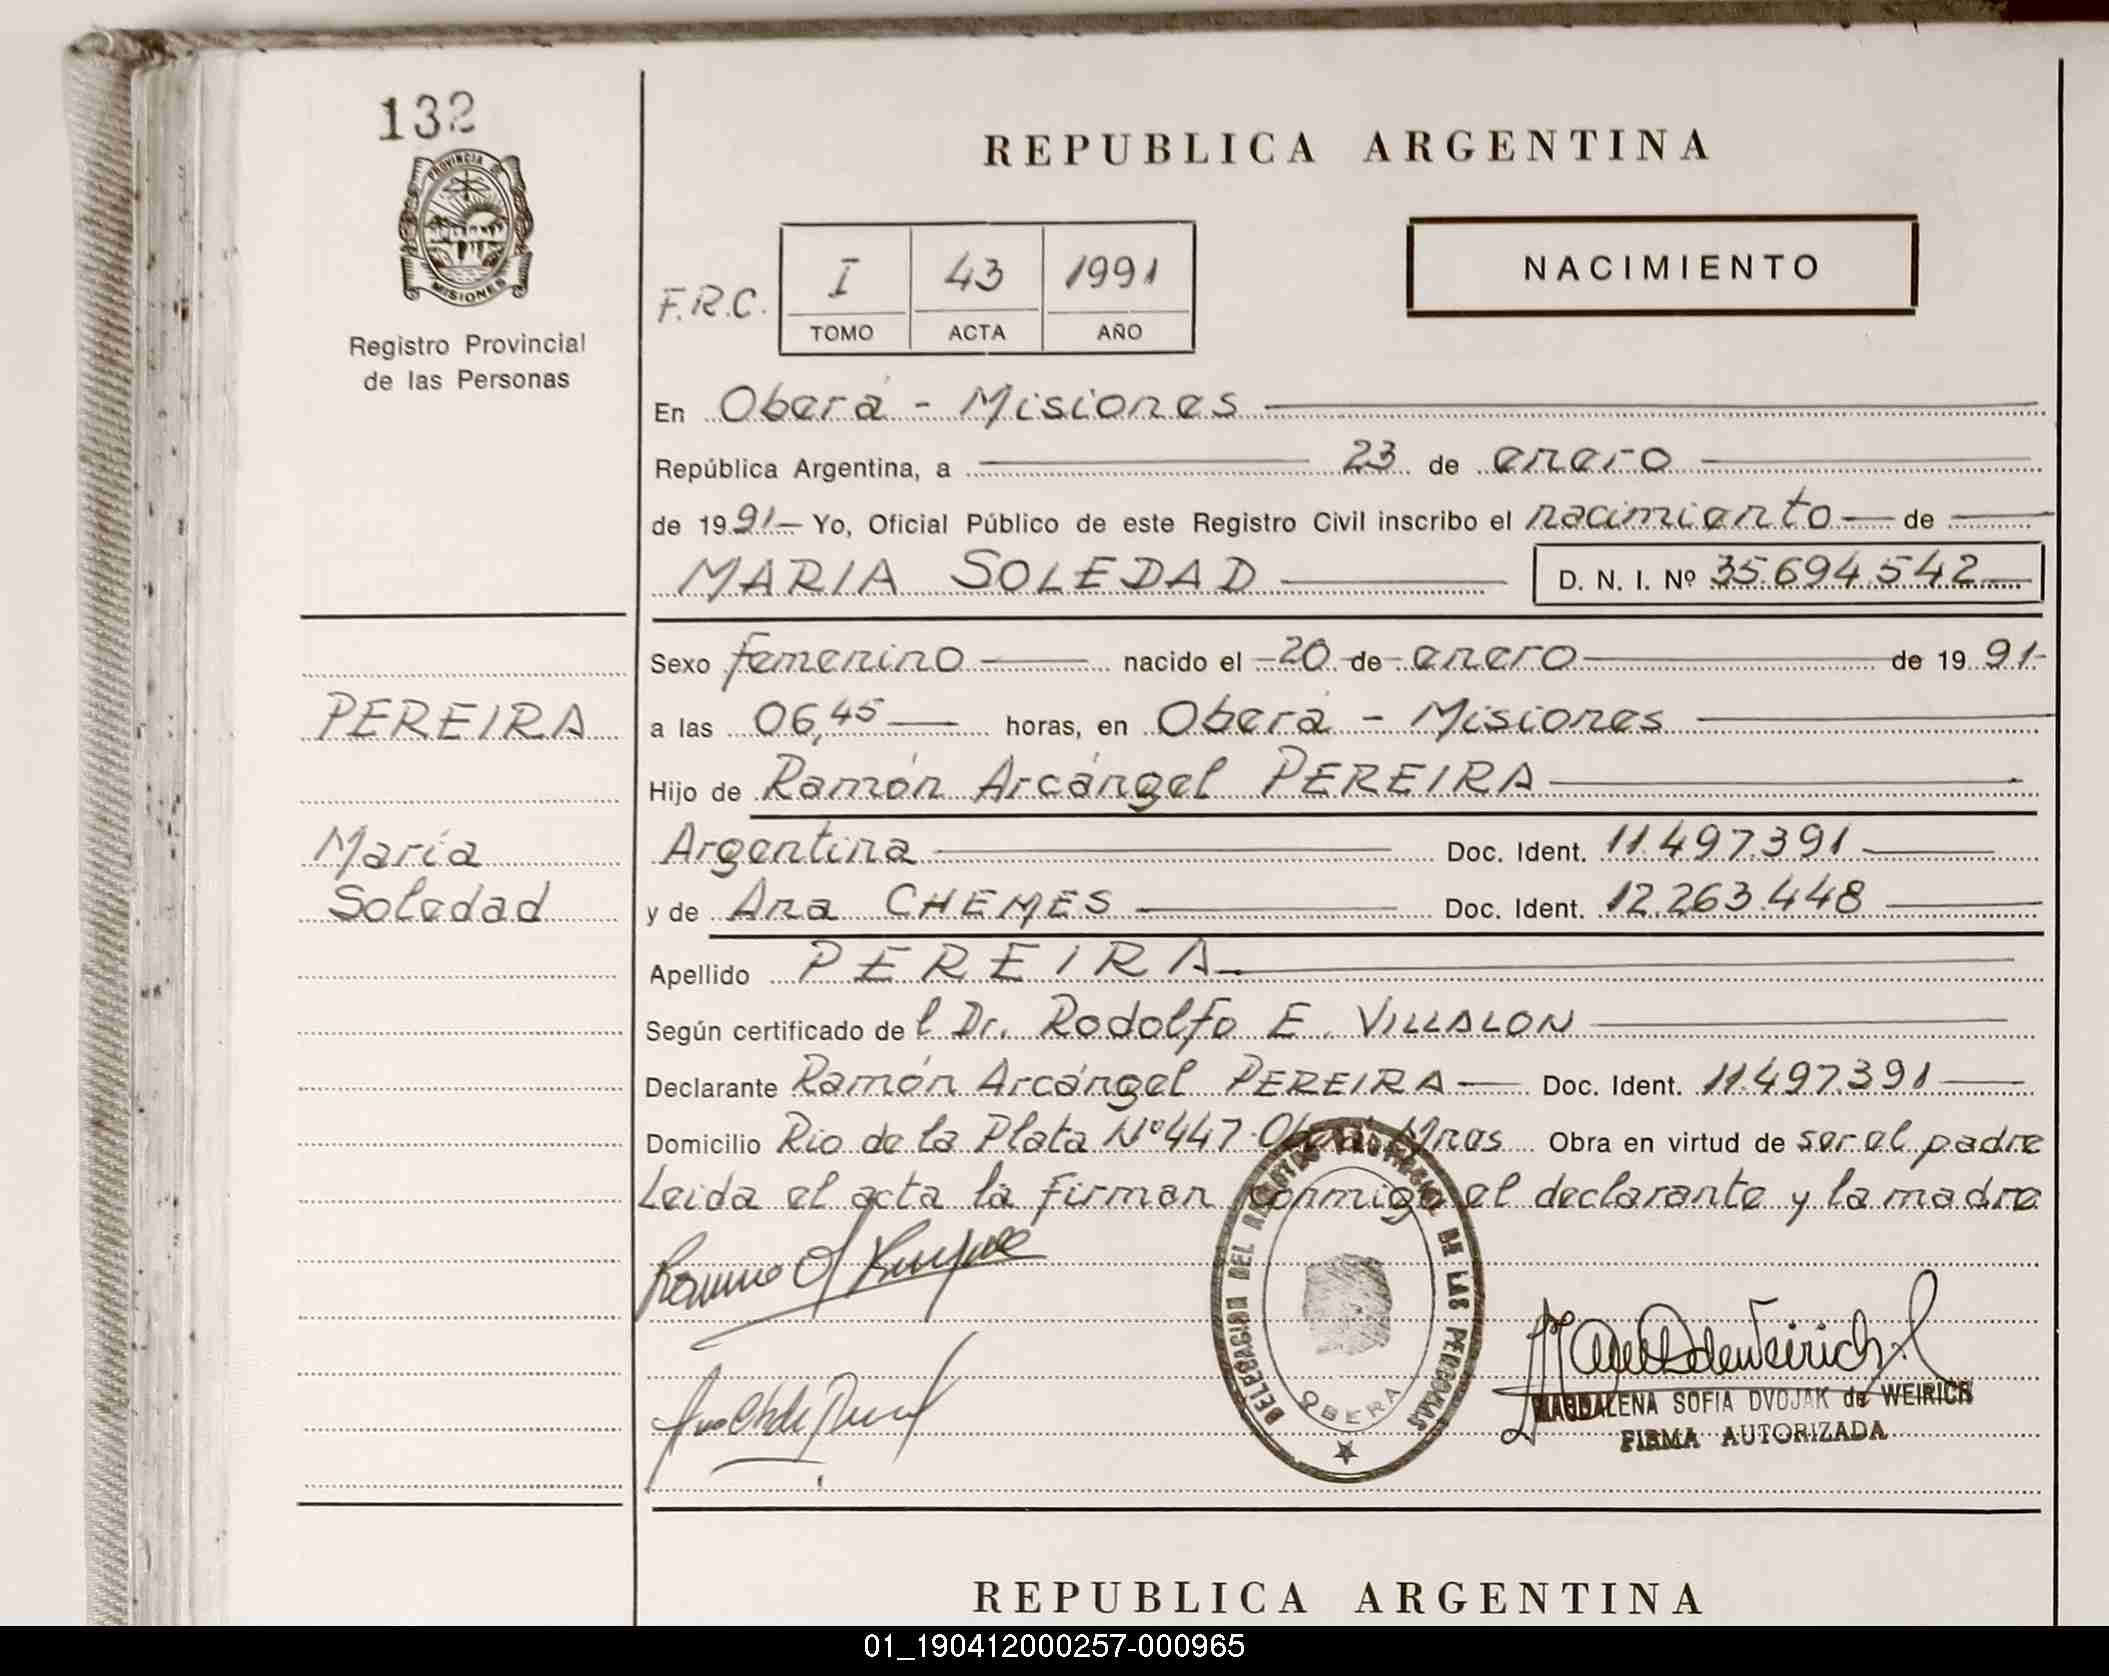 132
PROVINCIA
MISIONES
Registro Provincial
de las Personas
PEREIRA
María
Soledad
REPUBLICA ARGENTINA
NACIMIENTO
F.R.C.
I 43 1991
TOMO ACTA AÑO
En Oberá - Misiones
República Argentina, a 23 de enero
de 1991 Yo, Oficial Público de este Registro Civil inscribo el nacimiento de
MARIA SOLEDAD D. N. I. Nº 35.694.542
Sexo femenino nacido el 20 de enero de 1991
a las 06,45 horas, en Oberá - Misiones
Hijo de Ramón Arcángel PEREIRA
Argentina Doc. Ident. 11.497.391
y de Ana CHEMES Doc. Ident. 12.263.448
Apellido PEREIRA
Según certificado de l Dr. Rodolfo E. VILLALON
Declarante Ramón Arcángel PEREIRA Doc. Ident. 11.497.391
Domicilio Rio de la Plata Nº 447. Oberá Mnes Obra en virtud de ser el padre
Leida el acta la firman conmigo el declarante y la madre
DELEGACION DEL REGISTRO PROVINCIAL DE LAS PERSONAS
OBERA
MAGDALENA SOFIA DVOJAK de WEIRICH
FIRMA AUTORIZADA
REPUBLICA ARGENTINA
01_190412000257-000965